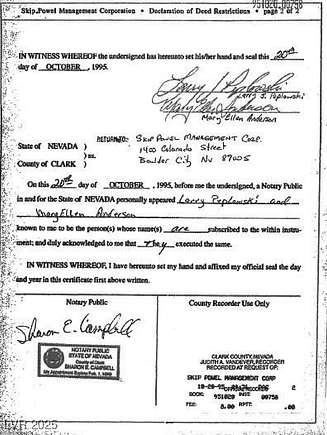 951020.00758
Skip.Powel Management Corporation • Declaration of Deed Restrictions • page 2 of 2
IN WITNESS WHEREOF the undersigned has hereunto set his/her hand and seal this 20th
day of OCTOBER , 1995.
Larry J. Peplowski
LARRY J. Peplowski
Mary Ellen Anderson
Mary Ellen Anderson
RETURNED: SKIP POWEL MANAGEMENT CORP.
State of NEVADA )
1400 Colorado Street
) ss.
Boulder City NV 89005
County of CLARK )
On this 20th day of OCTOBER , 1995, before me the undersigned, a Notary Public
in and for the State of NEVADA personally appeared Larry Peplowski and
Mary Ellen Anderson
known to me to be the person(s) whose name(s) are subscribed to the within instru-
ment; and duly acknowledged to me that They executed the same.
IN WITNESS WHEREOF, I have hereunto set my hand and affixed my official seal the day
and year in this certificate first above written.
Notary Public
County Recorder Use Only
Sharon E. Campbell
NOTARY PUBLIC
STATE OF NEVADA
County of Clark
SHARON E. CAMPBELL
My Appointment Expires Feb. 1,
CLARK COUNTY, NEVADA
JUDITH A. VANDEVER, RECORDER
RECORDED AT REQUEST OF:
SKIP POWEL MANAGEMENT CORP
10-20-95 2
BOOK: 951020 INST: 00758
FEE: 8.00 RPTT: .00
LVR 2025